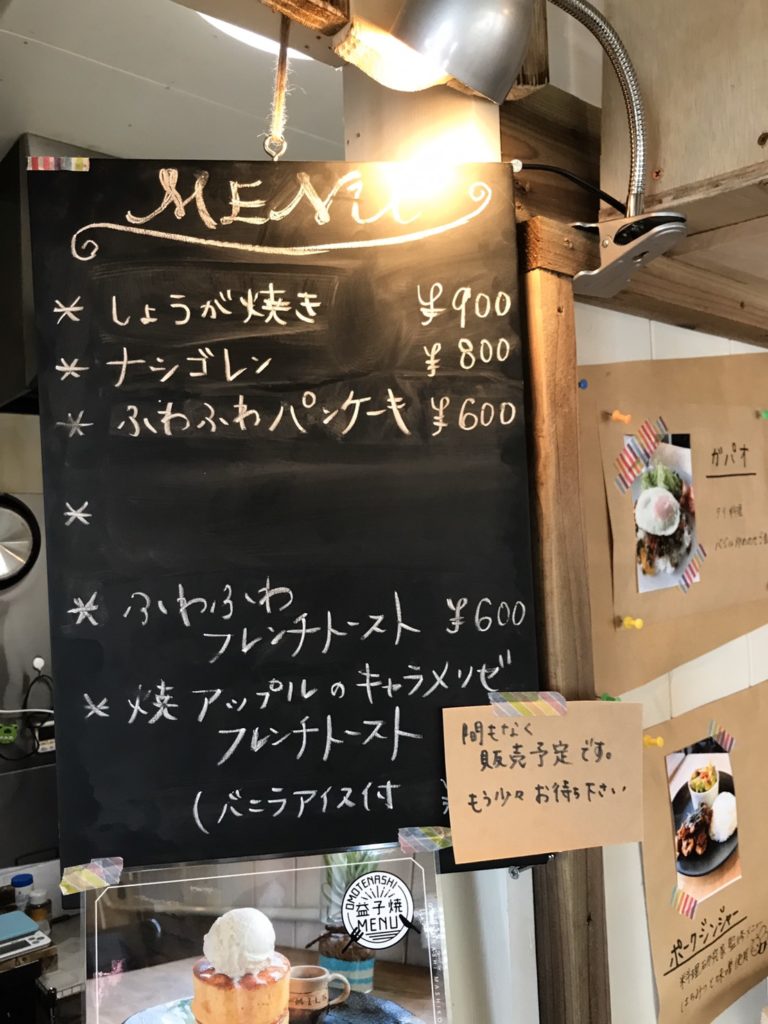 MENU
* しょうが焼き ¥900
* ナシゴレン ¥800
* ふわふわパンケーキ ¥600
*
* ふわふわ
フレンチトースト ¥600
* 焼アップルのキャラメリゼ
フレンチトースト
(バニラアイス付
間もなく
販売予定です。
もう少々お待ち下さい
OMOTENASHI
益子焼
MENU
ガパオ
タイ料理
ポークジンジャー